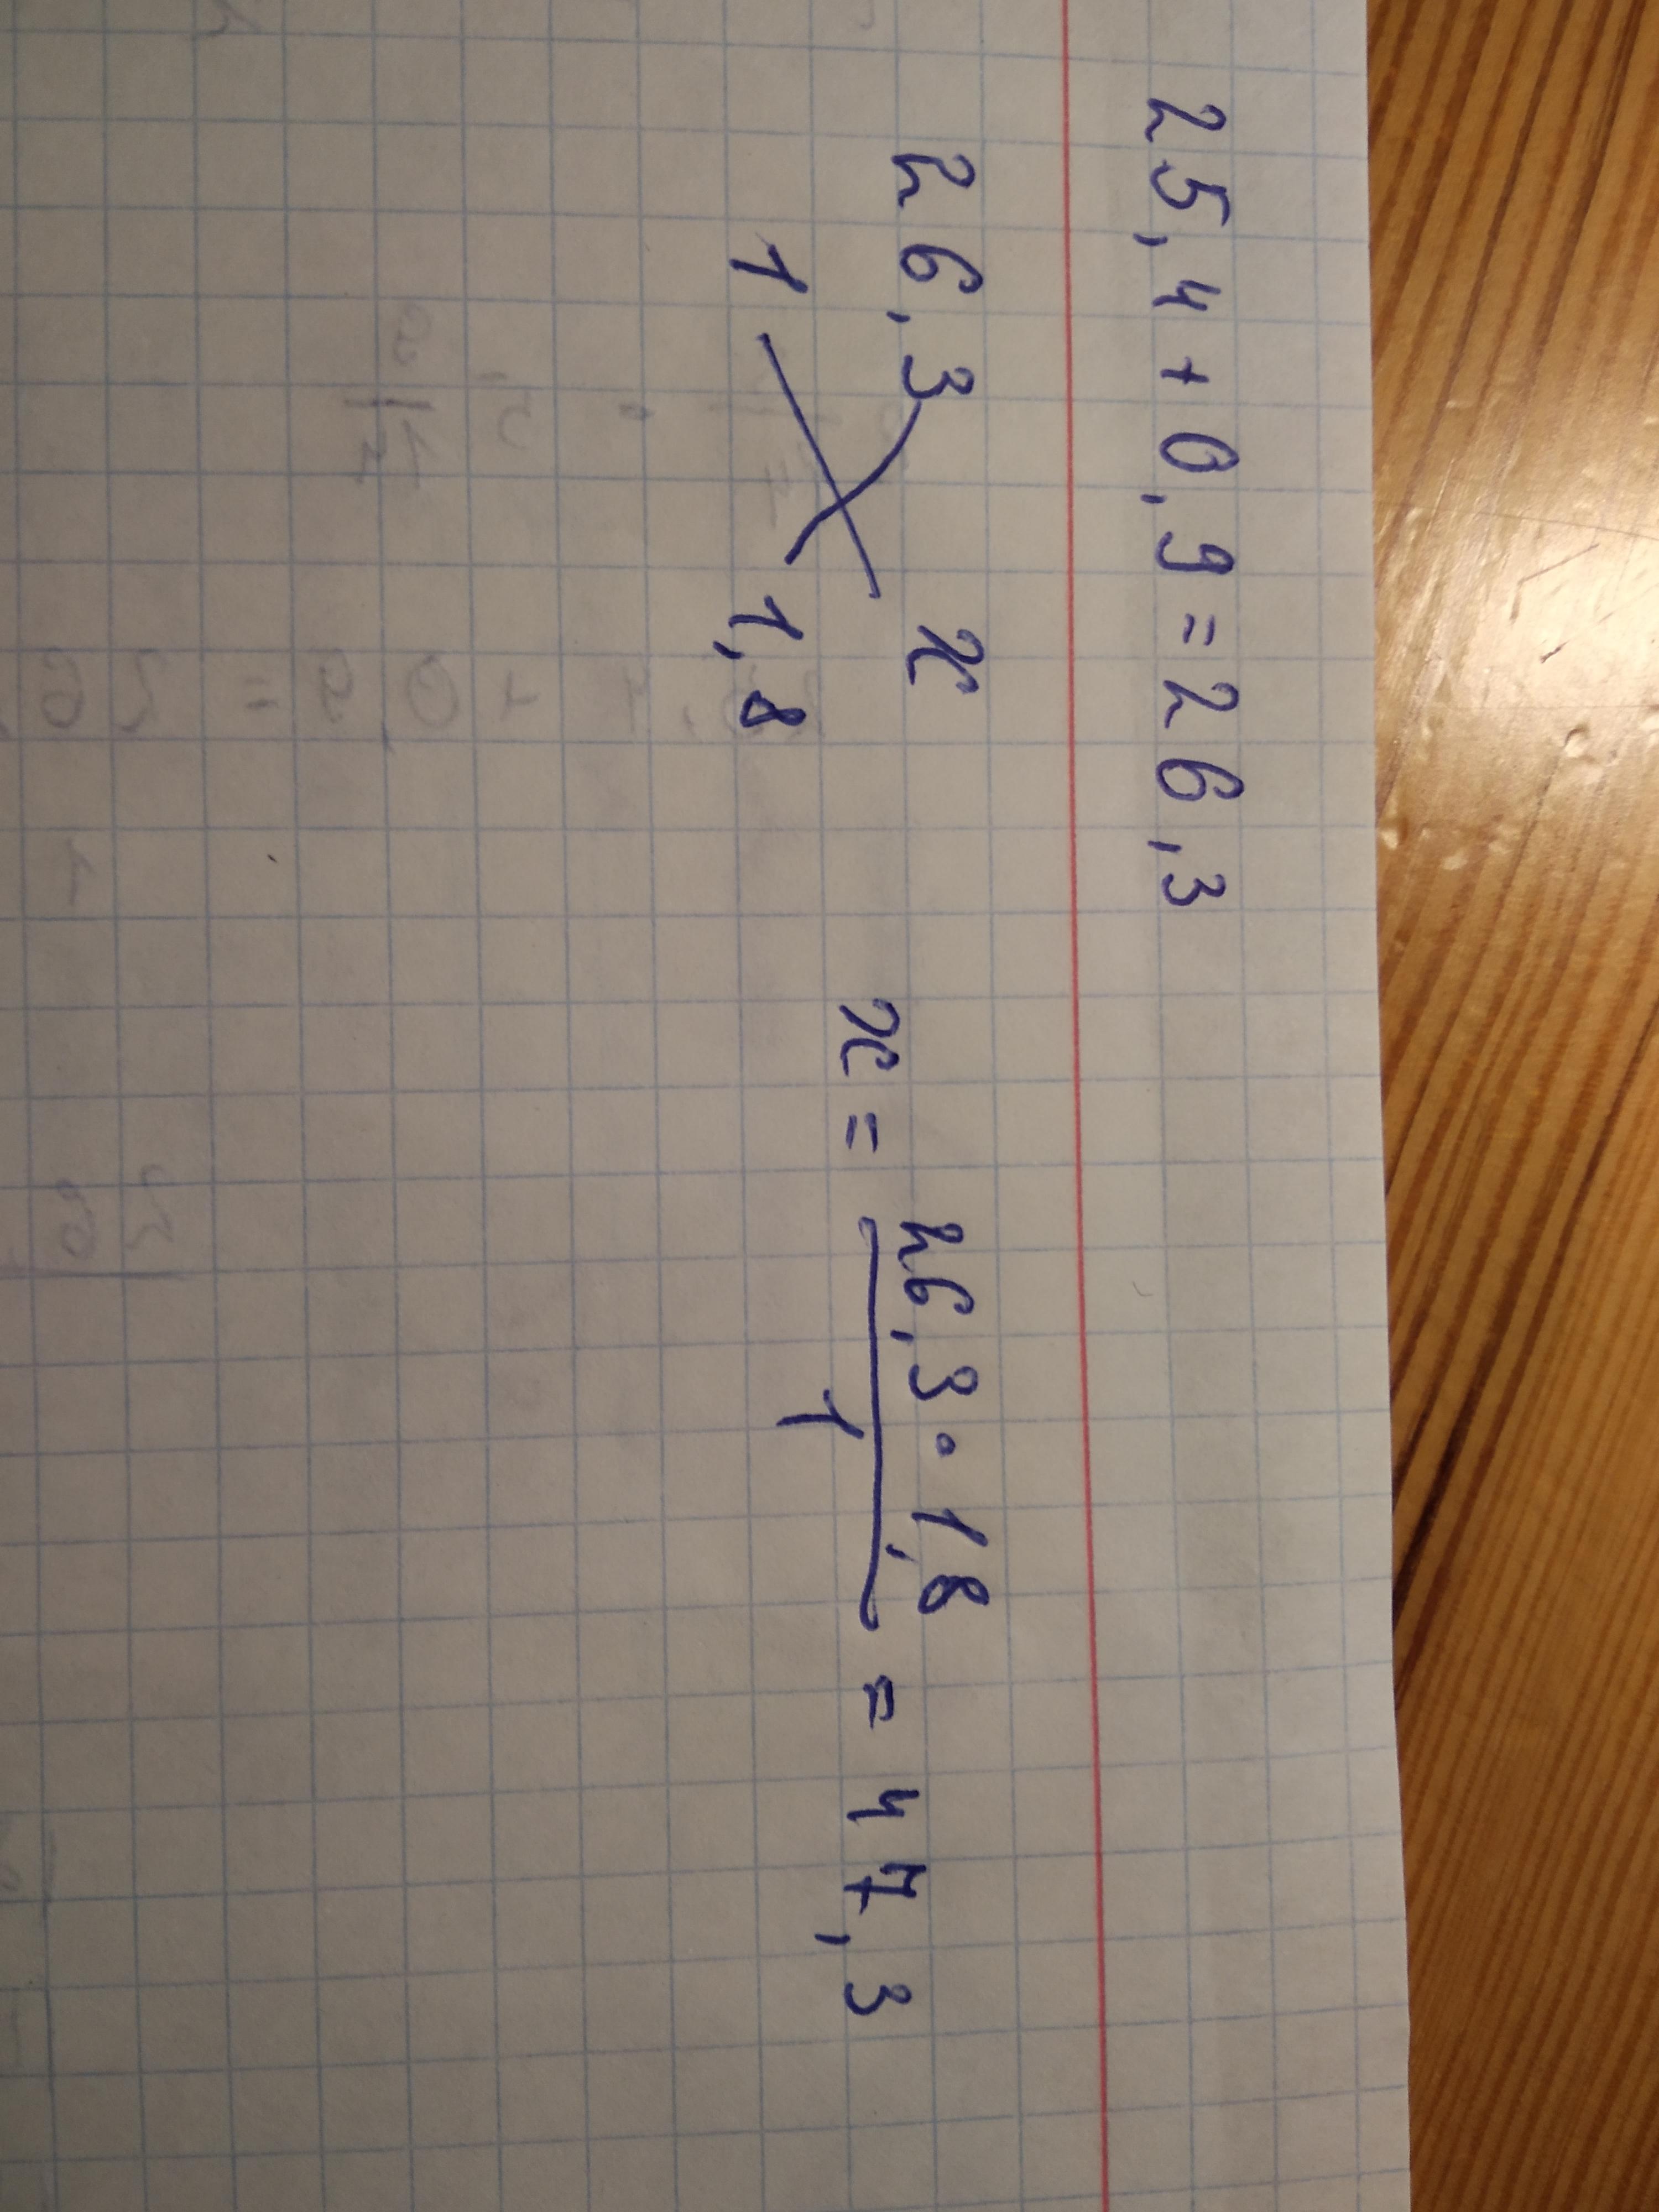 25,4 + 0,9 = 26,3
26,3 x
1 1,8
x = 26,3 · 1,8 / 1 = 47,3